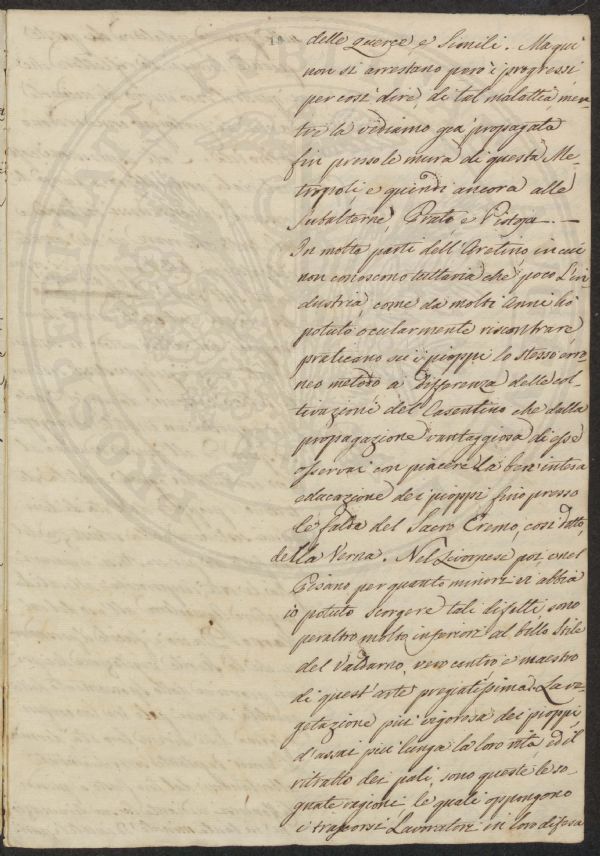 delle querce e simili. Ma quì
non si arrestano però i progressi
per così dire, di tal malattia, men=
tre la vediamo già propagata
fin presso le mura di questa Me=
tropoli, e quindi ancora alle
subalterne, Prato, e Pistoja.
In molte parti dell'Aretino, in cui
non conoscono tuttavia che poco l'in
dustria, come da molti Anni hò
potuto ocularmente riscontrare,
praticano su i pioppi lo stesso erro=
neo metodo a differenza delle col=
tivazioni del Casentino che dalla
propagazione vantaggiosa di esse
osservai con piacere la ben intesa
educazione dei pioppi fino presso
le falde del Sacro Eremo, così detto,
della Verna. Nel Livornese poi, e nel
Pisano per quanto minori vi abbia
io potuto scorgere tali difetti, sono
peraltro molto inferiori al bello stile
del Valdarno, vero centro, e maestro
di quest'arte pregiatissima. La ve=
getazione più vigorosa dei pioppi,
d'assai più lunga la loro vita, ed il
ritratto dei pali, sono queste le se=
guenti ragioni, le quali oppongono
i trascorsi Lavoratori in loro difesa
PROSPERITAM PUBL